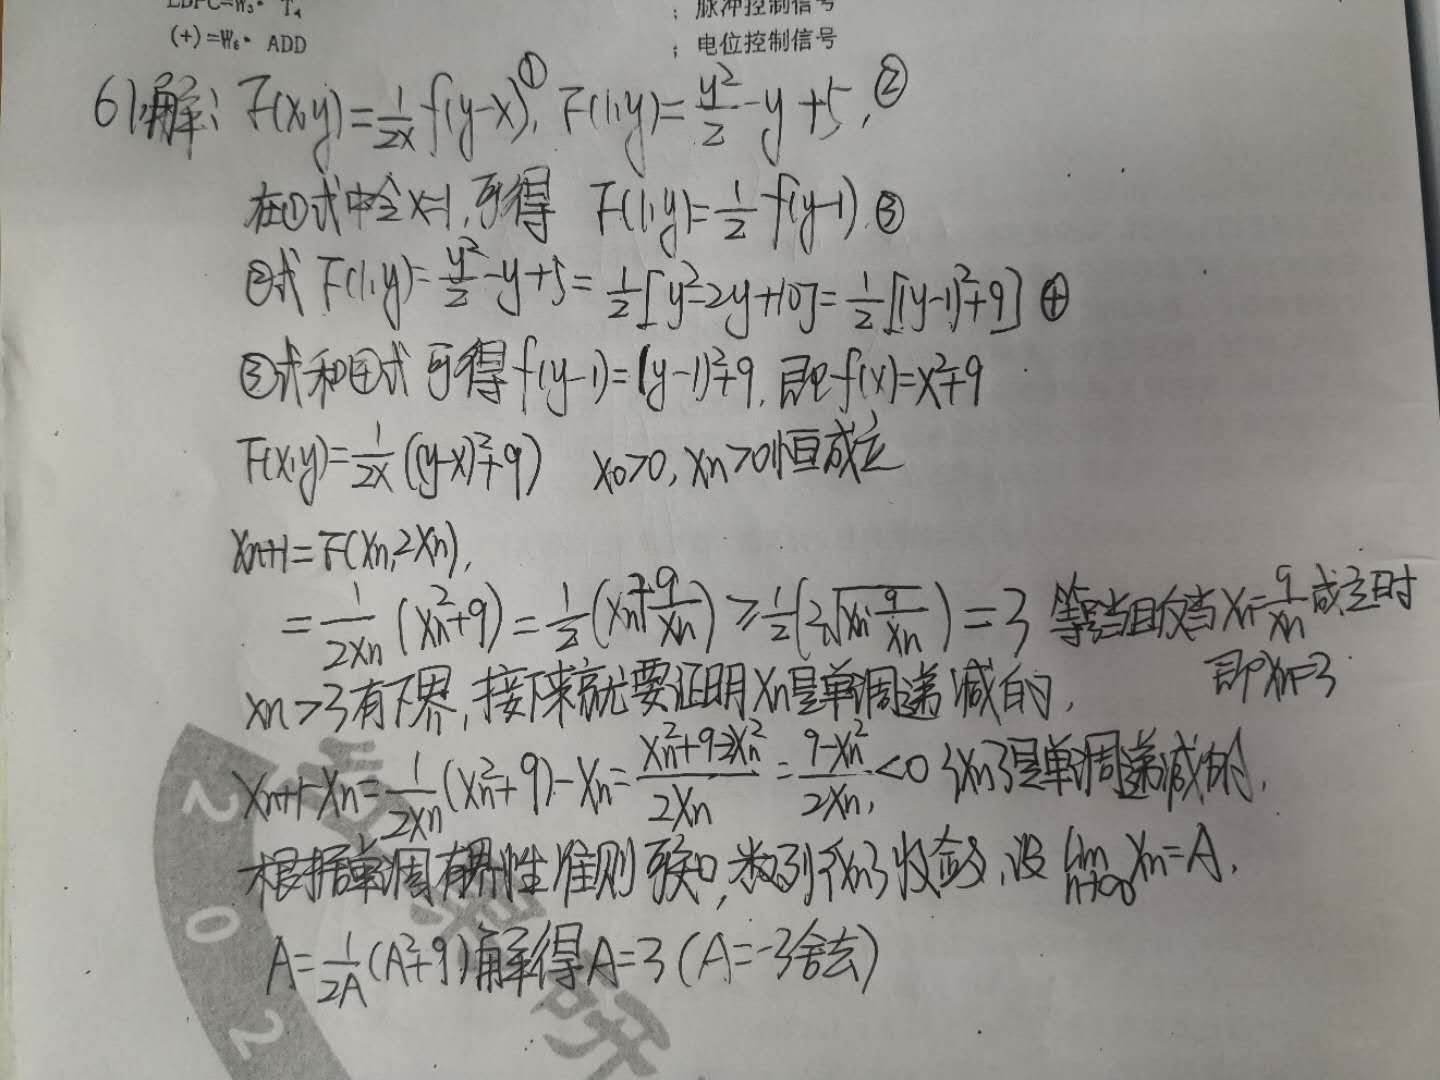 LDPC=W₃· T₄ ; 脉冲控制信号
(+)=W₆· ADD ; 电位控制信号
61.解: F(x,y)=\frac{1}{2x}f(y-x)①, F(1,y)=\frac{y²}{2}-y+5,②
在①式中令x=1,可得 F(1,y)=\frac{1}{2}f(y-1) ③
②式 F(1,y)=\frac{y²}{2}-y+5=\frac{1}{2}[y²-2y+10]=\frac{1}{2}[(y-1)²+9] ④
③式和④式 可得f(y-1)=(y-1)²+9, 即f(x)=x²+9
F(x,y)=\frac{1}{2x}((y-x)²+9) x₀>0, xn>0恒成立
xn+1=F(xn,2xn),
=\frac{1}{2xn}(xn²+9)=\frac{1}{2}(xn+\frac{9}{xn})≥\frac{1}{2}(2\sqrt{xn·\frac{9}{xn}})=3 等号当且仅当xn=\frac{9}{xn}成立时
即xn=3
xn>3有下界,接下来就要证明xn是单调递减的,
xn+1-xn=\frac{1}{2xn}(xn²+9)-xn=\frac{xn²+9-2xn²}{2xn}=\frac{9-xn²}{2xn}<0 {xn}是单调递减的,
根据单调有界性准则可知,数列{xn}收敛,设\lim_{n→∞}xn=A,
A=\frac{1}{2A}(A²+9)解得A=3(A=-3舍去)
202
研